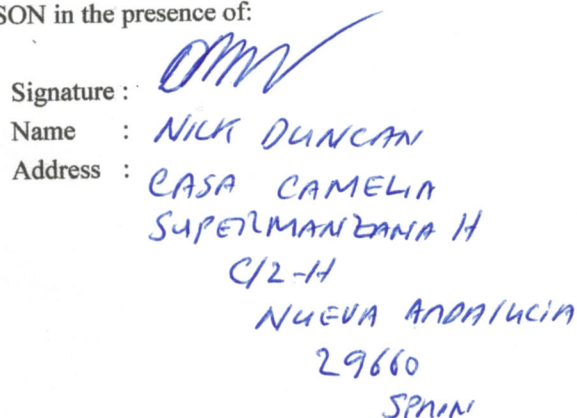 SON in the presence of:
Signature :
Name : NICK DUNCAN
Address : CASA CAMELIA
SUPERMANZANA H
C/2-H
NUEVA ANDALUCIA
29660
SPAIN